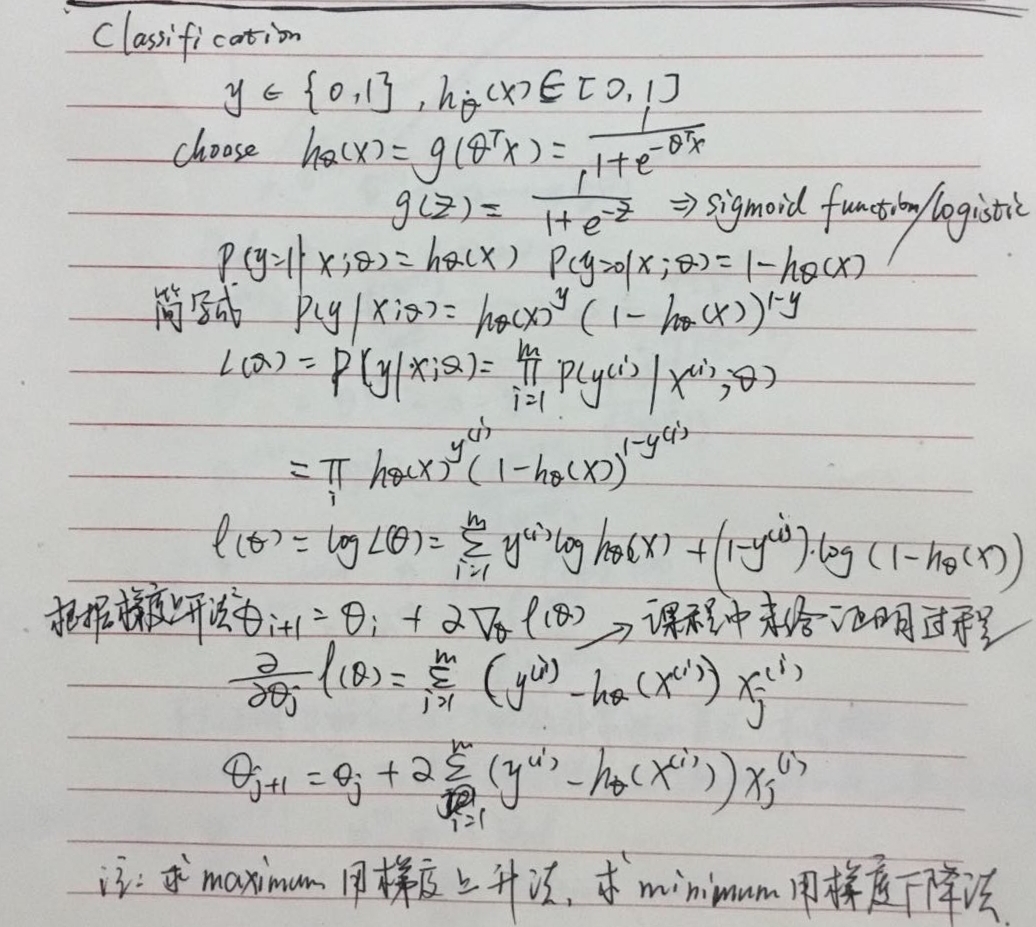 Classification
y ∈ {0,1}, hθ(x) ∈ [0,1]
choose hθ(x) = g(θᵀx) = 1/(1+e^(-θᵀx))
g(z) = 1/(1+e^(-z)) ⇒ sigmoid function/logistic
P(y=1|x;θ) = hθ(x) P(y=0|x;θ) = 1-hθ(x)
简写成 P(y|x;θ) = hθ(x)^y (1-hθ(x))^(1-y)
L(θ) = P(y|x;θ) = ∏_{i=1}^m P(y^(i)|x^(i);θ)
= ∏_i hθ(x)^{y^(i)} (1-hθ(x))^{1-y^(i)}
ℓ(θ) = log L(θ) = ∑_{i=1}^m y^(i) log hθ(x) + (1-y^(i))·log(1-hθ(x))
根据梯度上升法 θ_{i+1} = θ_i + α∇_θ ℓ(θ) → 课程中未给证明过程
∂/∂θ_j ℓ(θ) = ∑_{i=1}^m (y^(i) - hθ(x^(i))) x_j^(i)
θ_{j+1} = θ_j + α ∑_{i=1}^m (y^(i) - hθ(x^(i))) x_j^(i)
注: 求 maximum 用梯度上升法, 求 minimum 用梯度下降法.